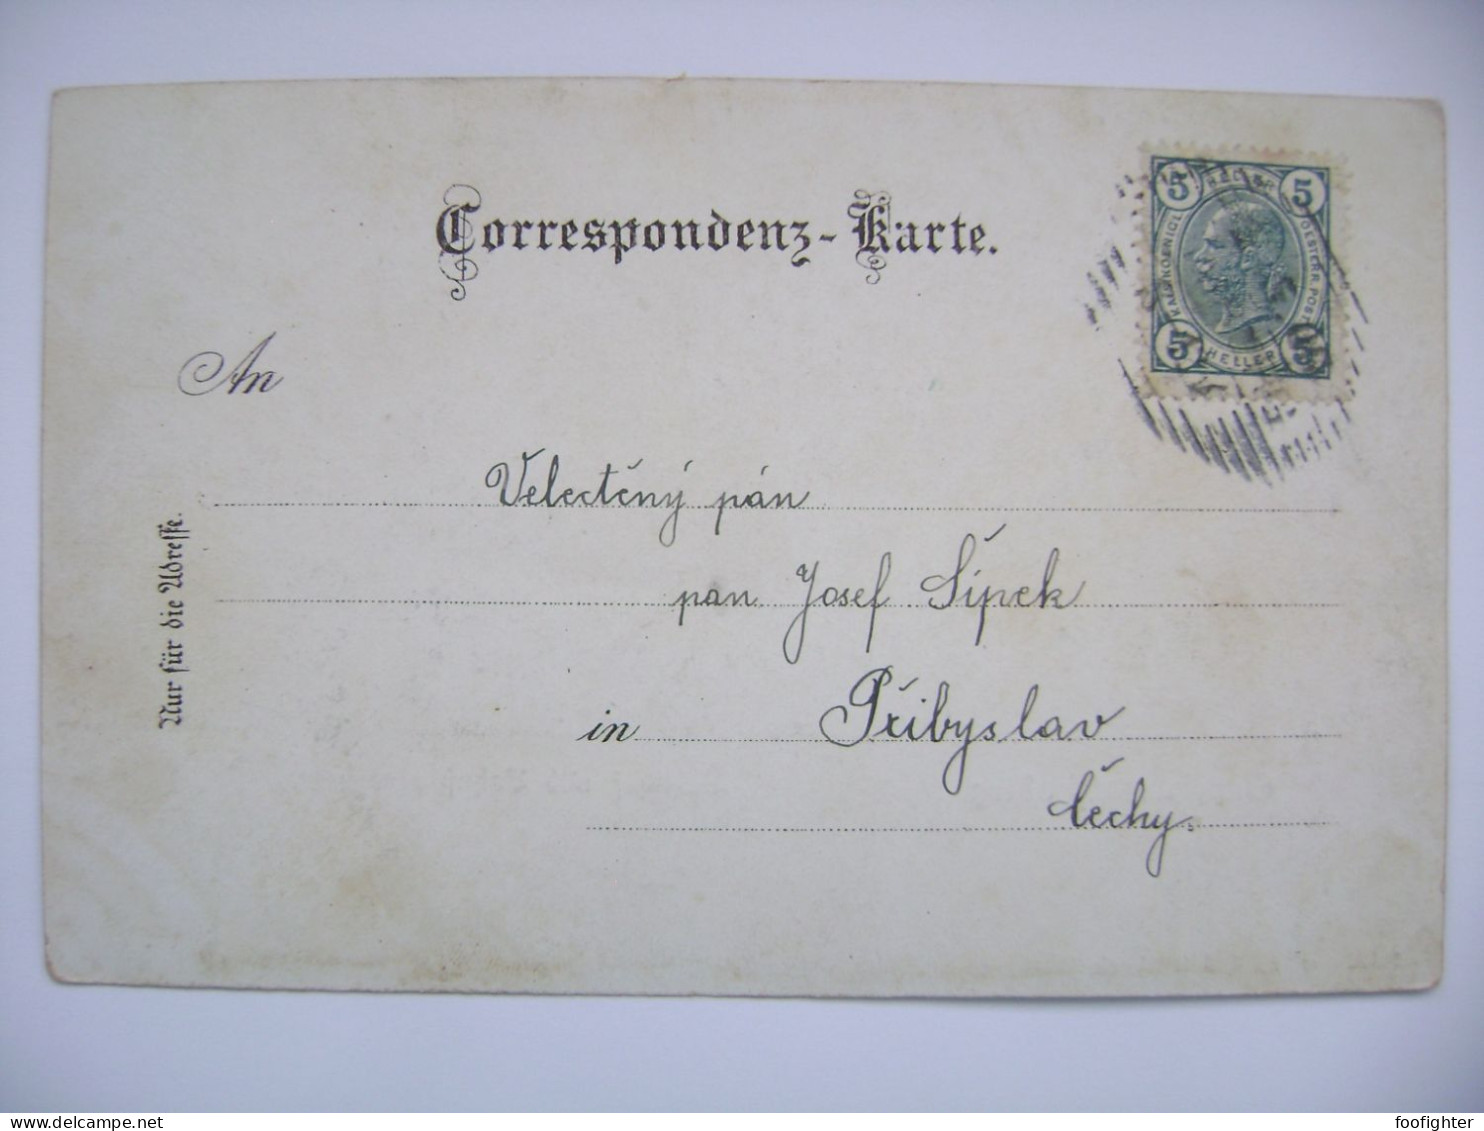 Correspondenz-Karte.
5 HELLER 5
KAIS. KOENIGL. OESTERR. POST
5 HELLER 5
An
Velectěný pán
pan Josef Šípek
in Přibyslav
Čechy.
Nur für die Adresse.
foofighter